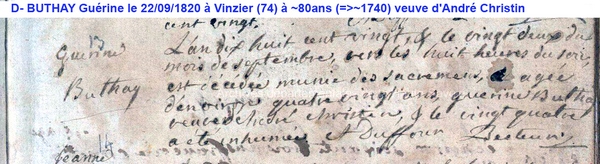 D- BUTHAY Guérine le 22/09/1820 à Vinzier (74) à ~80ans (=>~1740) veuve d'André Christin
cent vingt.
Guérine
Buthay
L'an dix huit cent vingt, & le vingt deux du
mois de septembre, vers les huit heures du soir,
est décédée munie des sacremens, agée
d'environ quatre vingt ans, guerine Buthay
veuve christin, & le vingt quatre
a été inhumée Duffour Recteur
jeanne